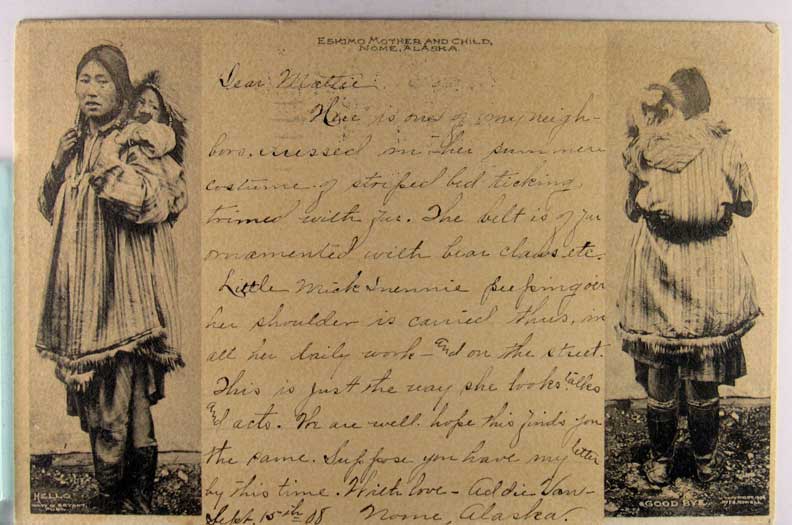 ESKIMO MOTHER AND CHILD,
NOME, ALASKA.
Dear Mattie
Here is one of my neigh-
bors. dressed in her summer
costume of striped bed ticking,
trimed with fur. The belt is of fur
ornamented with bear claws etc.
Little Mick peeping over
her shoulder is carried thus, in
all her daily work - and on the street.
This is just the way she looks talks
and acts. We are well. hope this finds you
the same. Suppose you have my letter
by this time. With love - Addie Van-
Sept. 15th 08 Nome, Alaska.
HELLO
PUBR.
GOOD BYE